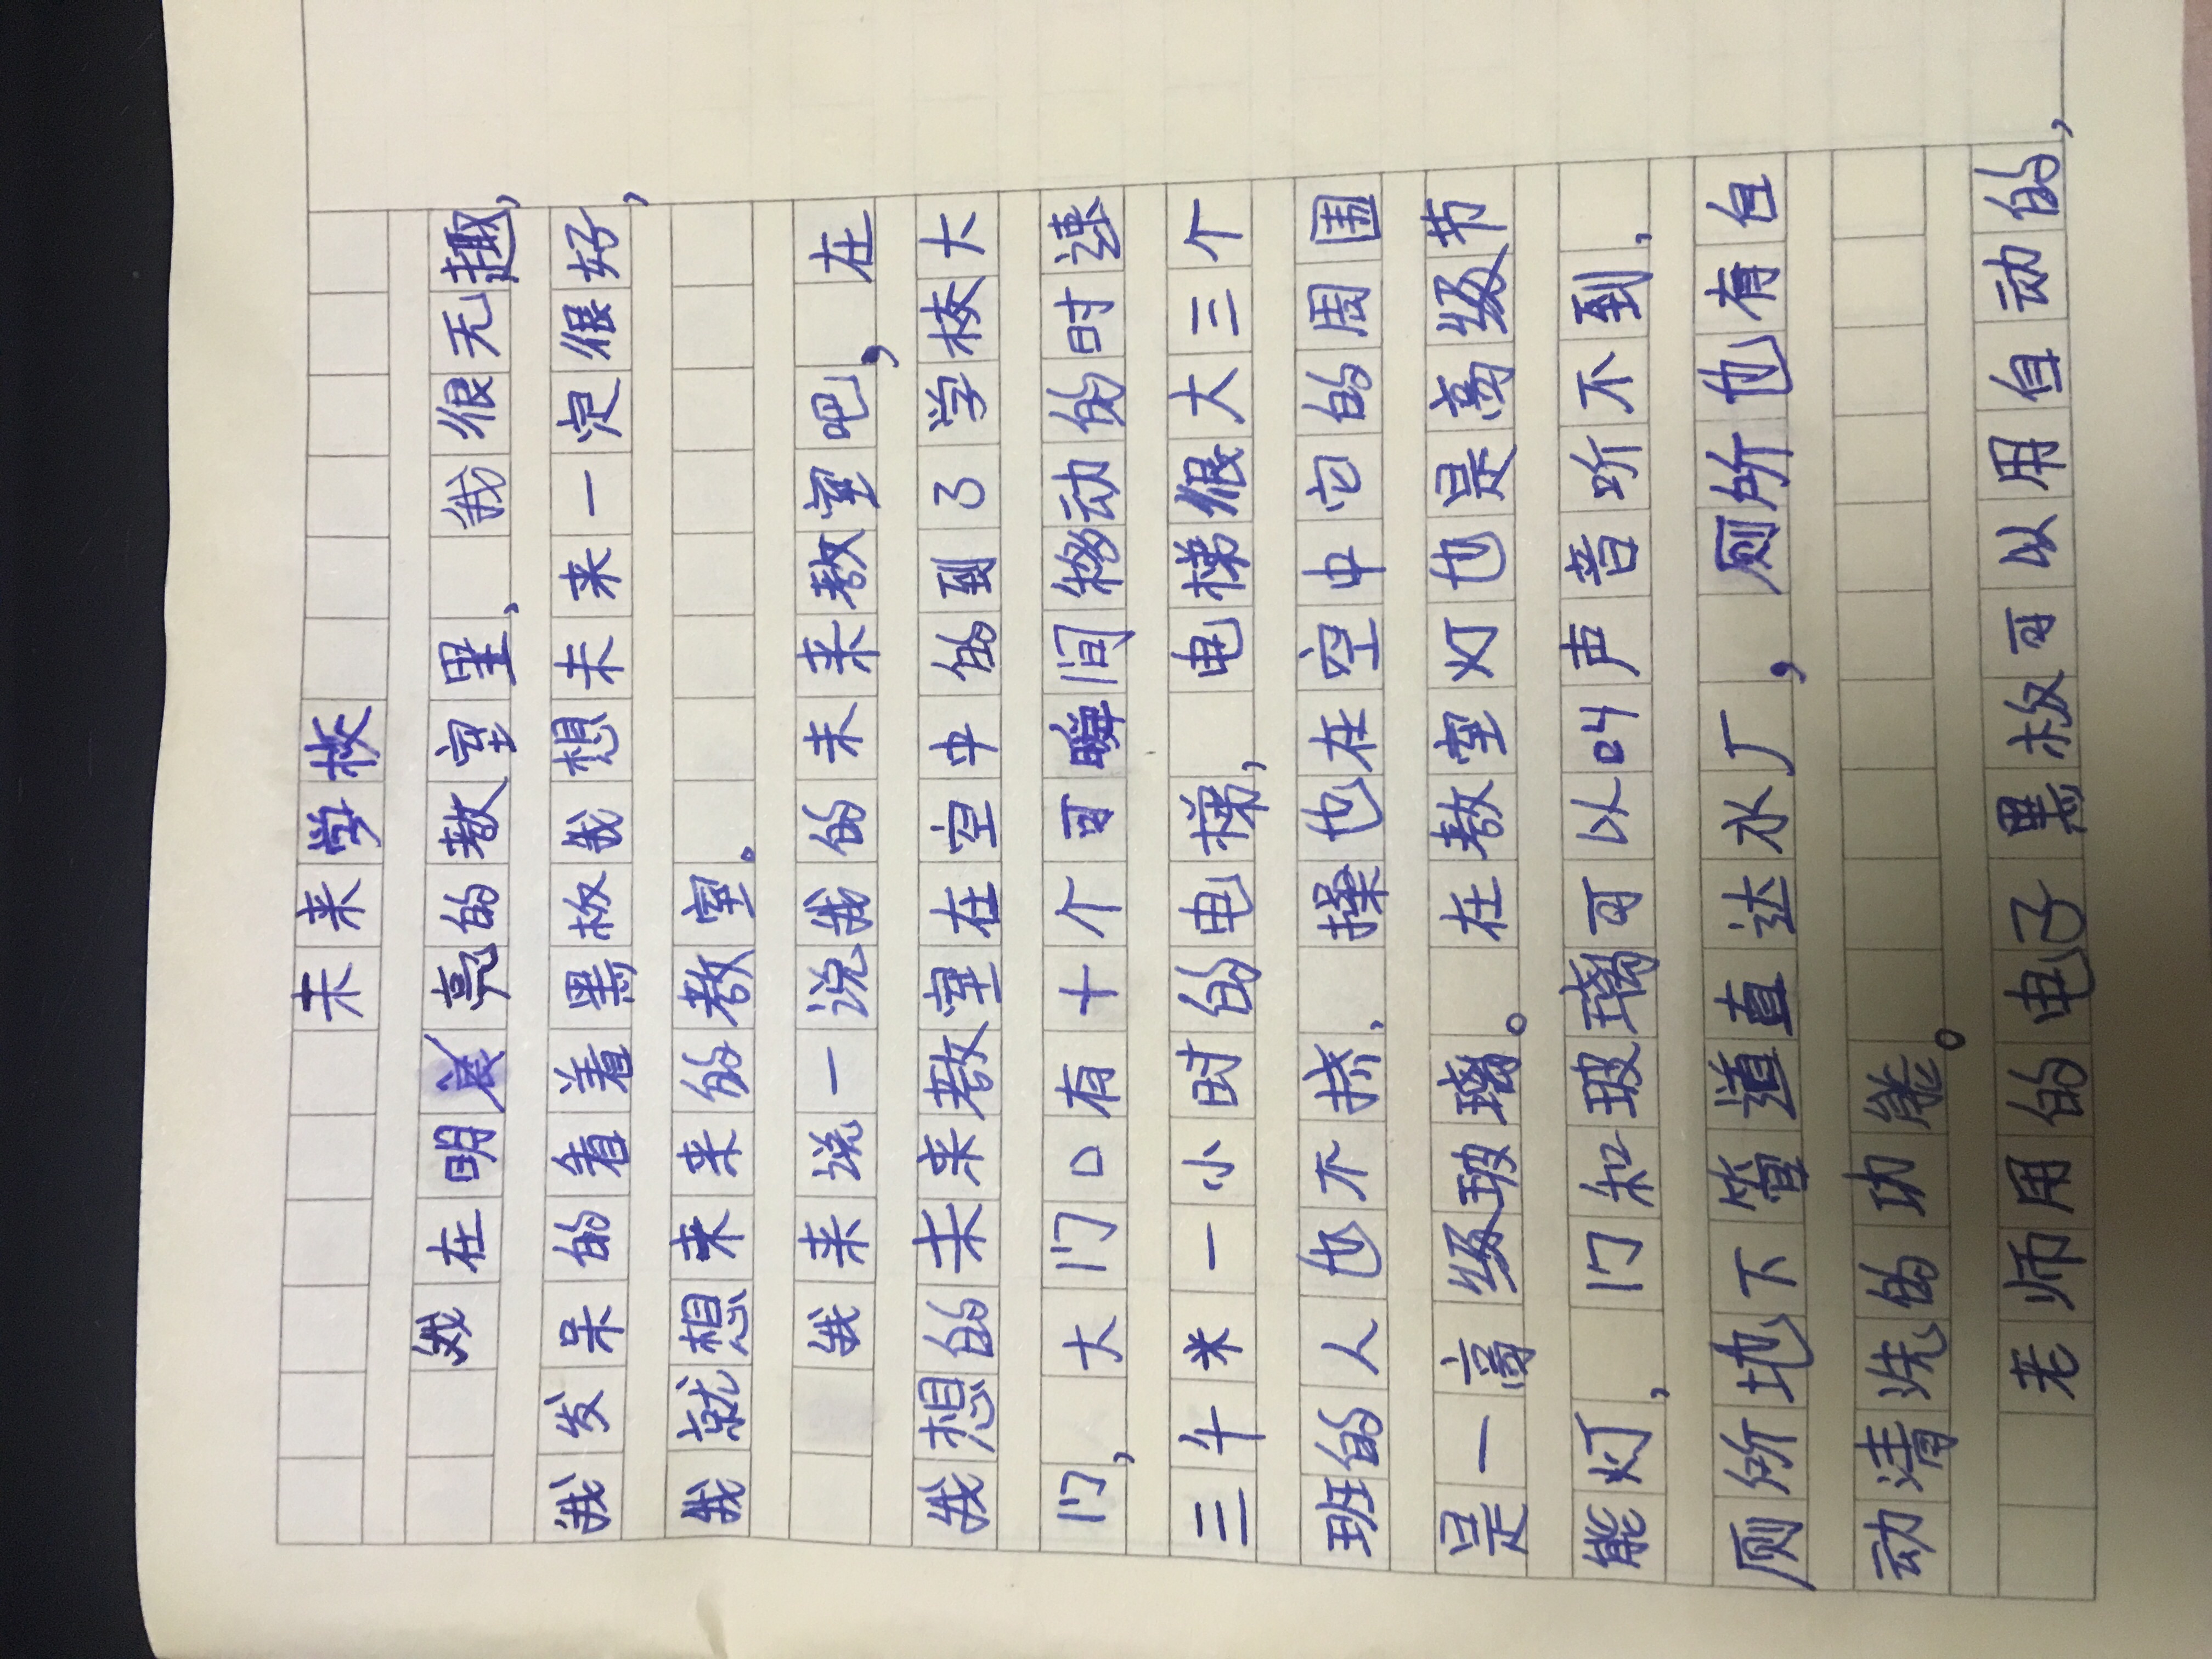 未来学校
我在明亮的教室里，我很无趣，
我发呆的看着黑板我想未来一定很好，
我就想来来的教室。
我来说一说我的未来教室吧，在
我想的未来教室在空中的到了学校大
门，大门口有十个可瞬间移动的时速
三千米一小时的电梯，电梯很大三个
班的人也不挤，操也在空中它的周围
是一高级玻璃。在教室灯也是高级节
能灯，门和玻璃可以叫声音听不到，
厕所地下管道直达水厂，厕所也有自
动清洗的功能。
老师用的电子黑板可以用自动的，